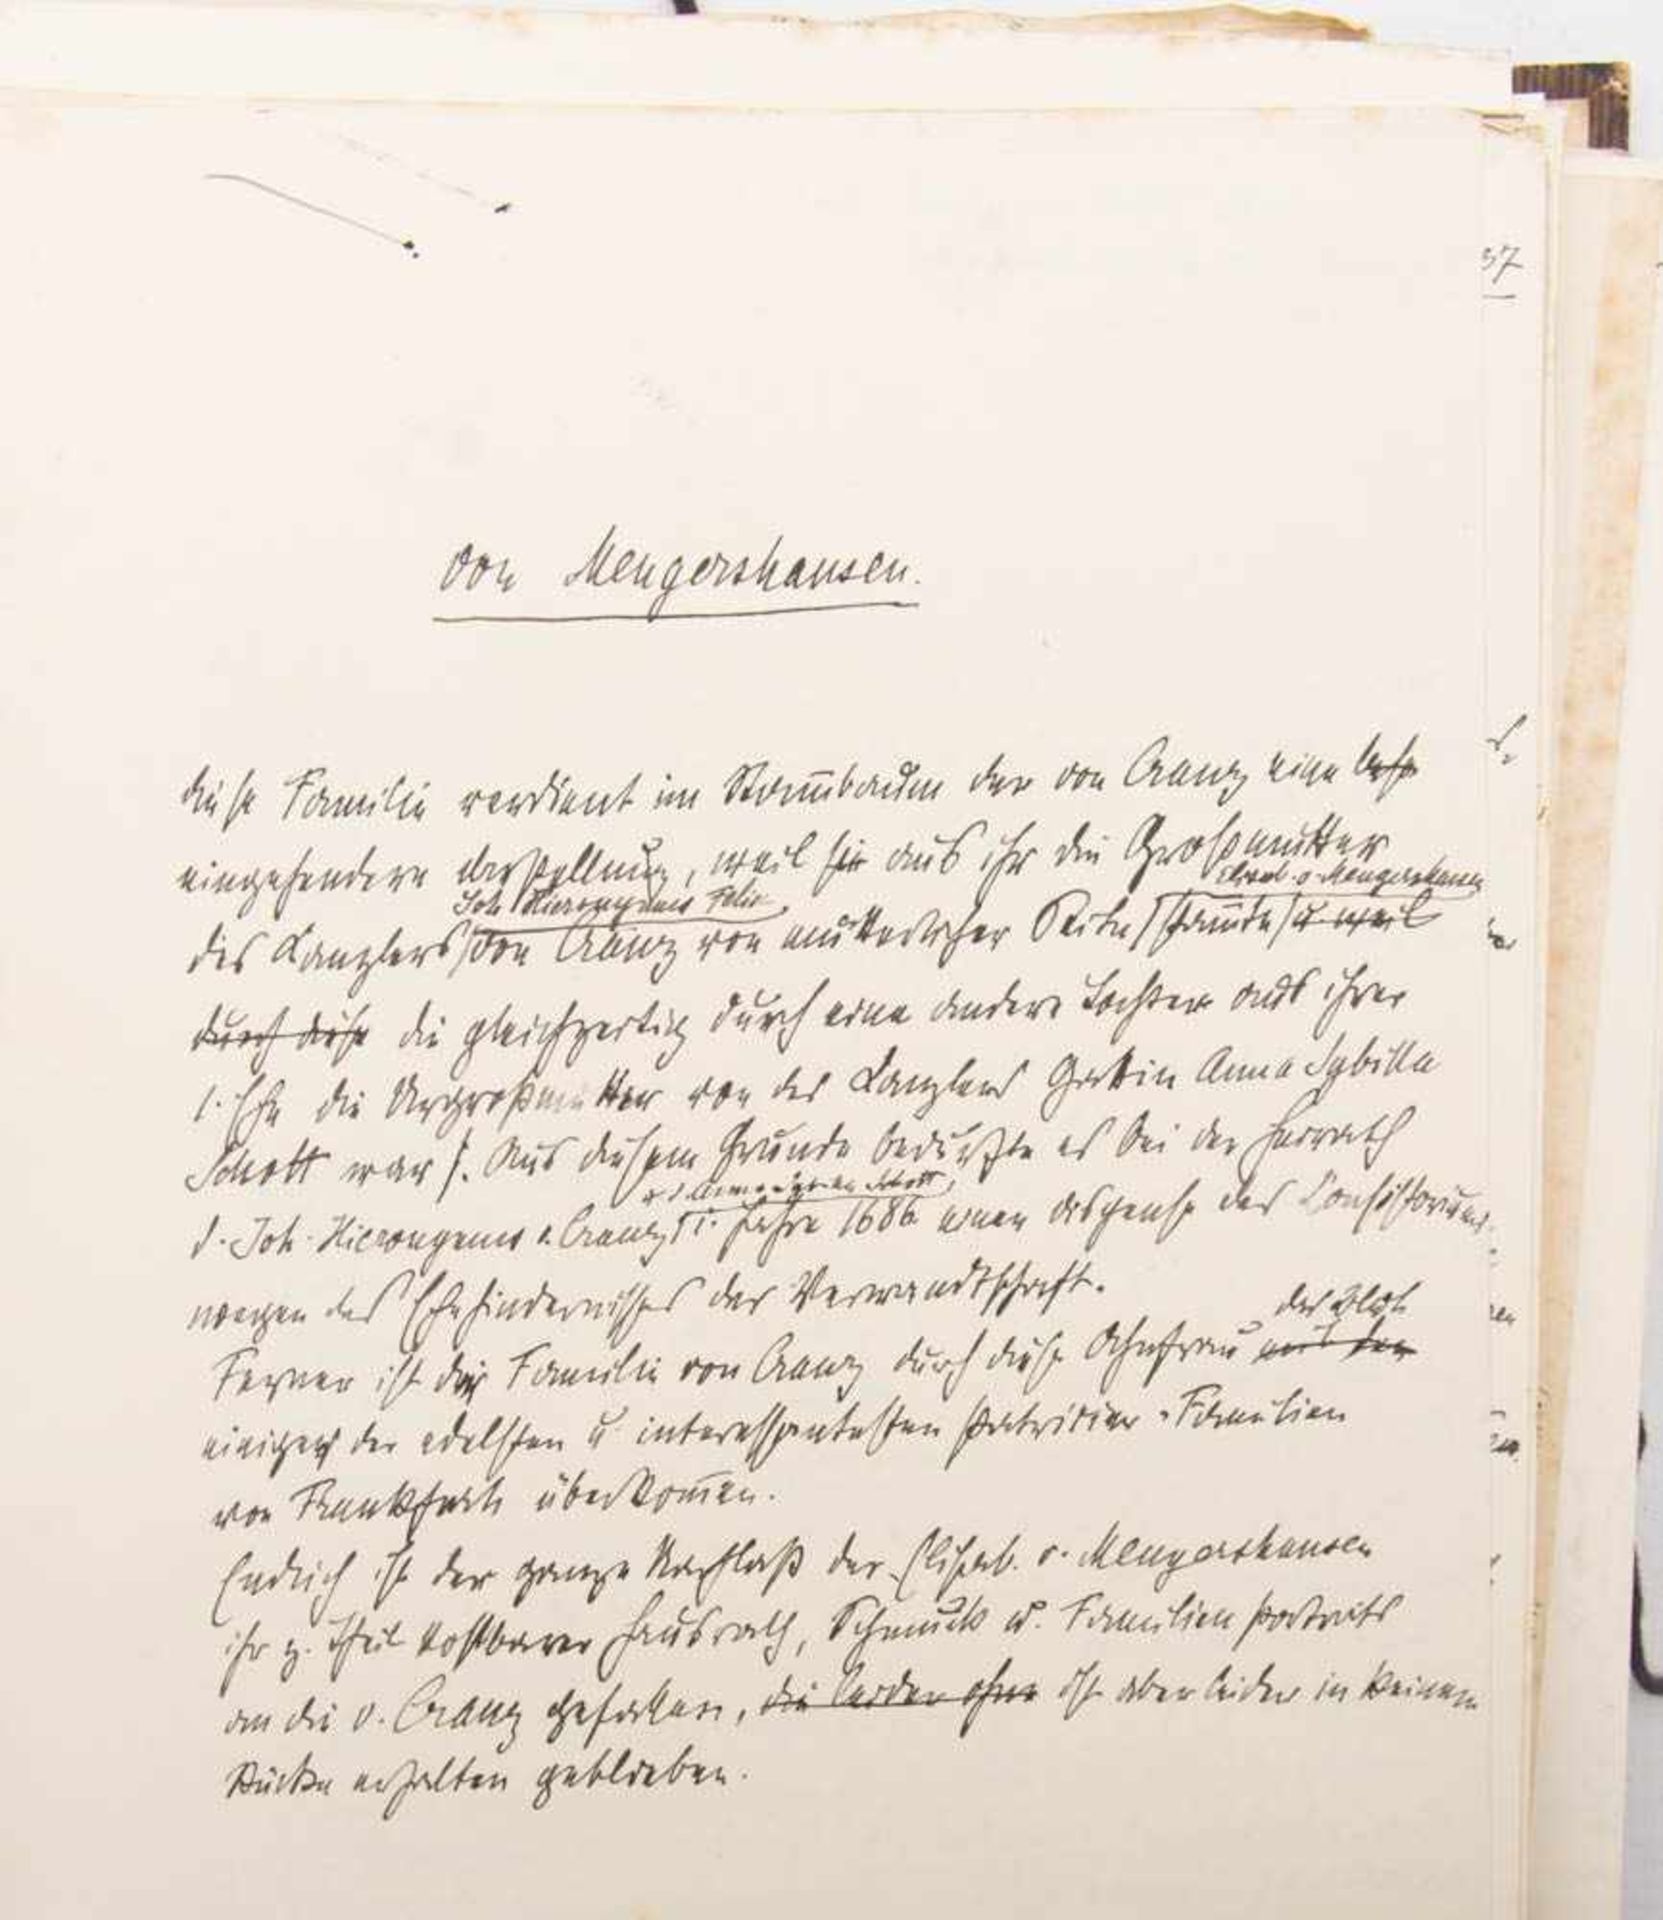 37
von Mengershausen.
diese Familie verdient im Stammbaum der von Cranz eine
eingehendere darstellung, weil sie aus ihr die Großmutter
Joh Hieronymus Felix Elisab. v. Mengershausen
des Kanzlers von Cranz von mütterlicher Seite stam̄te u weil
durch diese die gleichzeitig durch eine andere Tochter aus ihrer
1. Ehe die Urgroßmutter von des Kanzlers Gattin Anna Sybilla
Schott war). Aus diesem Grunde bedurfte es bei der Heirath
Schott
d. Joh. Hieronymus v. Cranz i. Jahre 1686 eines dispenses des Consistoriums
wegen des Ehehindernisses der Verwandtschaft.
das Blut
Ferner ist die Familie von Cranz durch diese Ahnfrau mit den
einiger der edelsten u interessantesten Patrizier-Familien
von Frankfurth überkom̄en.
Endlich ist der ganze Nachlaß der Elisab. v. Mengershausen
ihr z. Theil kostbarer Hausrath, Schmuck u. Familien portraits
an die v. Cranz gefallen, die leider ohne ist aber leider in keinem
Stücke erhalten geblieben.